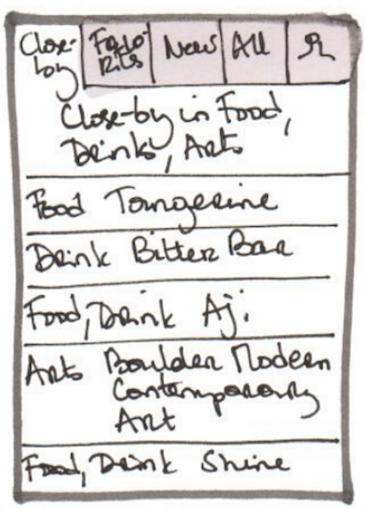 Close- by
Favo- rits
News
All
Close-by in Food,
Drinks, Arts
Food Tangerine
Drink Bitter Bar
Food, Drink Aji
Arts Boulder Modern
Contemporary
Art
Food, Drink Shine